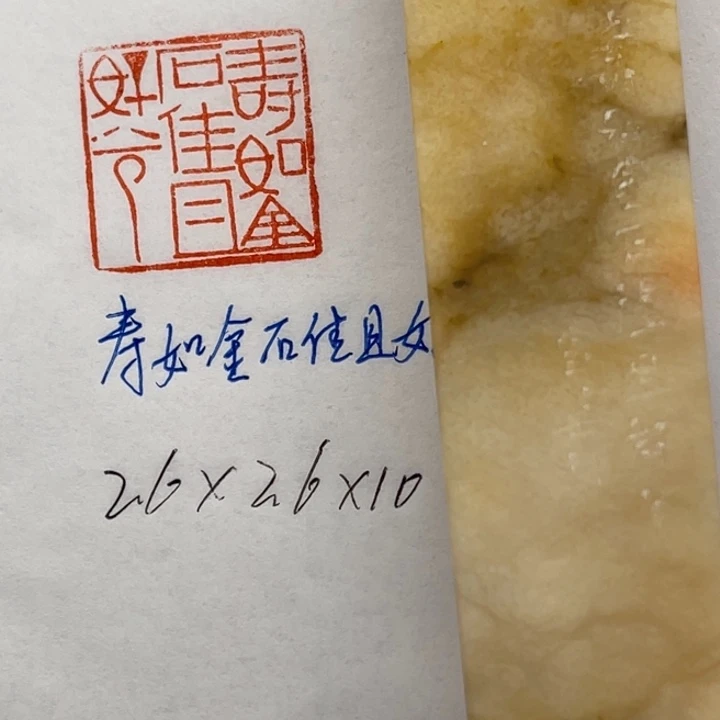 壽如金
石佳且
好兮
寿如金石佳且
26×26×10